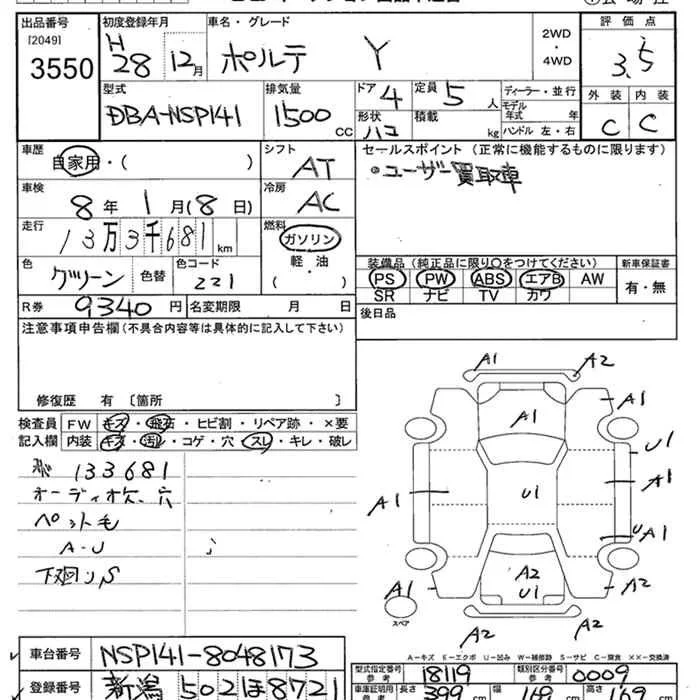 出品番号 初度登録年月 車名・グレード 2WD・4WD 評価点
[2049] 3550 H28 12月 ポルテ Y 3.5
型式 排気量 ドア 4 定員 5人 ディーラー・並行 外装 内装
DBA-NSP141 1500 CC 形状 ハコ 積載 kg モデル年式 年 ハンドル 左・右 C C
車歴 自家用・( ) シフト AT セールスポイント (正常に機能するものに限ります)
・ユーザー買取車
車検 8年 1月(8日) 冷房 AC
走行 13万3千681km 燃料 ガソリン
軽・油
( )
色 グリーン 色替 色コード 221
装備品(純正品に限り〇をつけてください) 新車保証書
PS PW ABS エアB AW 有・無
SR ナビ TV カワ
R券 9340円 名変期限 月 日 後日品
注意事項申告欄(不具合内容等は具体的に記入して下さい)
修復歴 有 〔箇所 〕
検査員 FW キズ・飛石・ヒビ割・リペア跡・×要
記入欄 内装 キズ・汚れ・コゲ・穴・スレ・キレ・破レ
133681
オーディオ欠、穴
ペット毛
A-U
下廻りS
A1 A2
A1 A1
U1
A1 U1 A1
UA1
A2
U1
A1 A2
スペア
A2 A2
A-キズ E-エクボ U-凹み W-補修跡 S-サビ C-腐食 ××-交換済
車台番号 NSP141-8048173
型式指定番号 参考 18119 類別区分番号 参考 0009
登録番号 新潟 502 ほ 8721
車庫証明用 参考 長さ 399 cm 幅 169 cm 高さ 169 cm